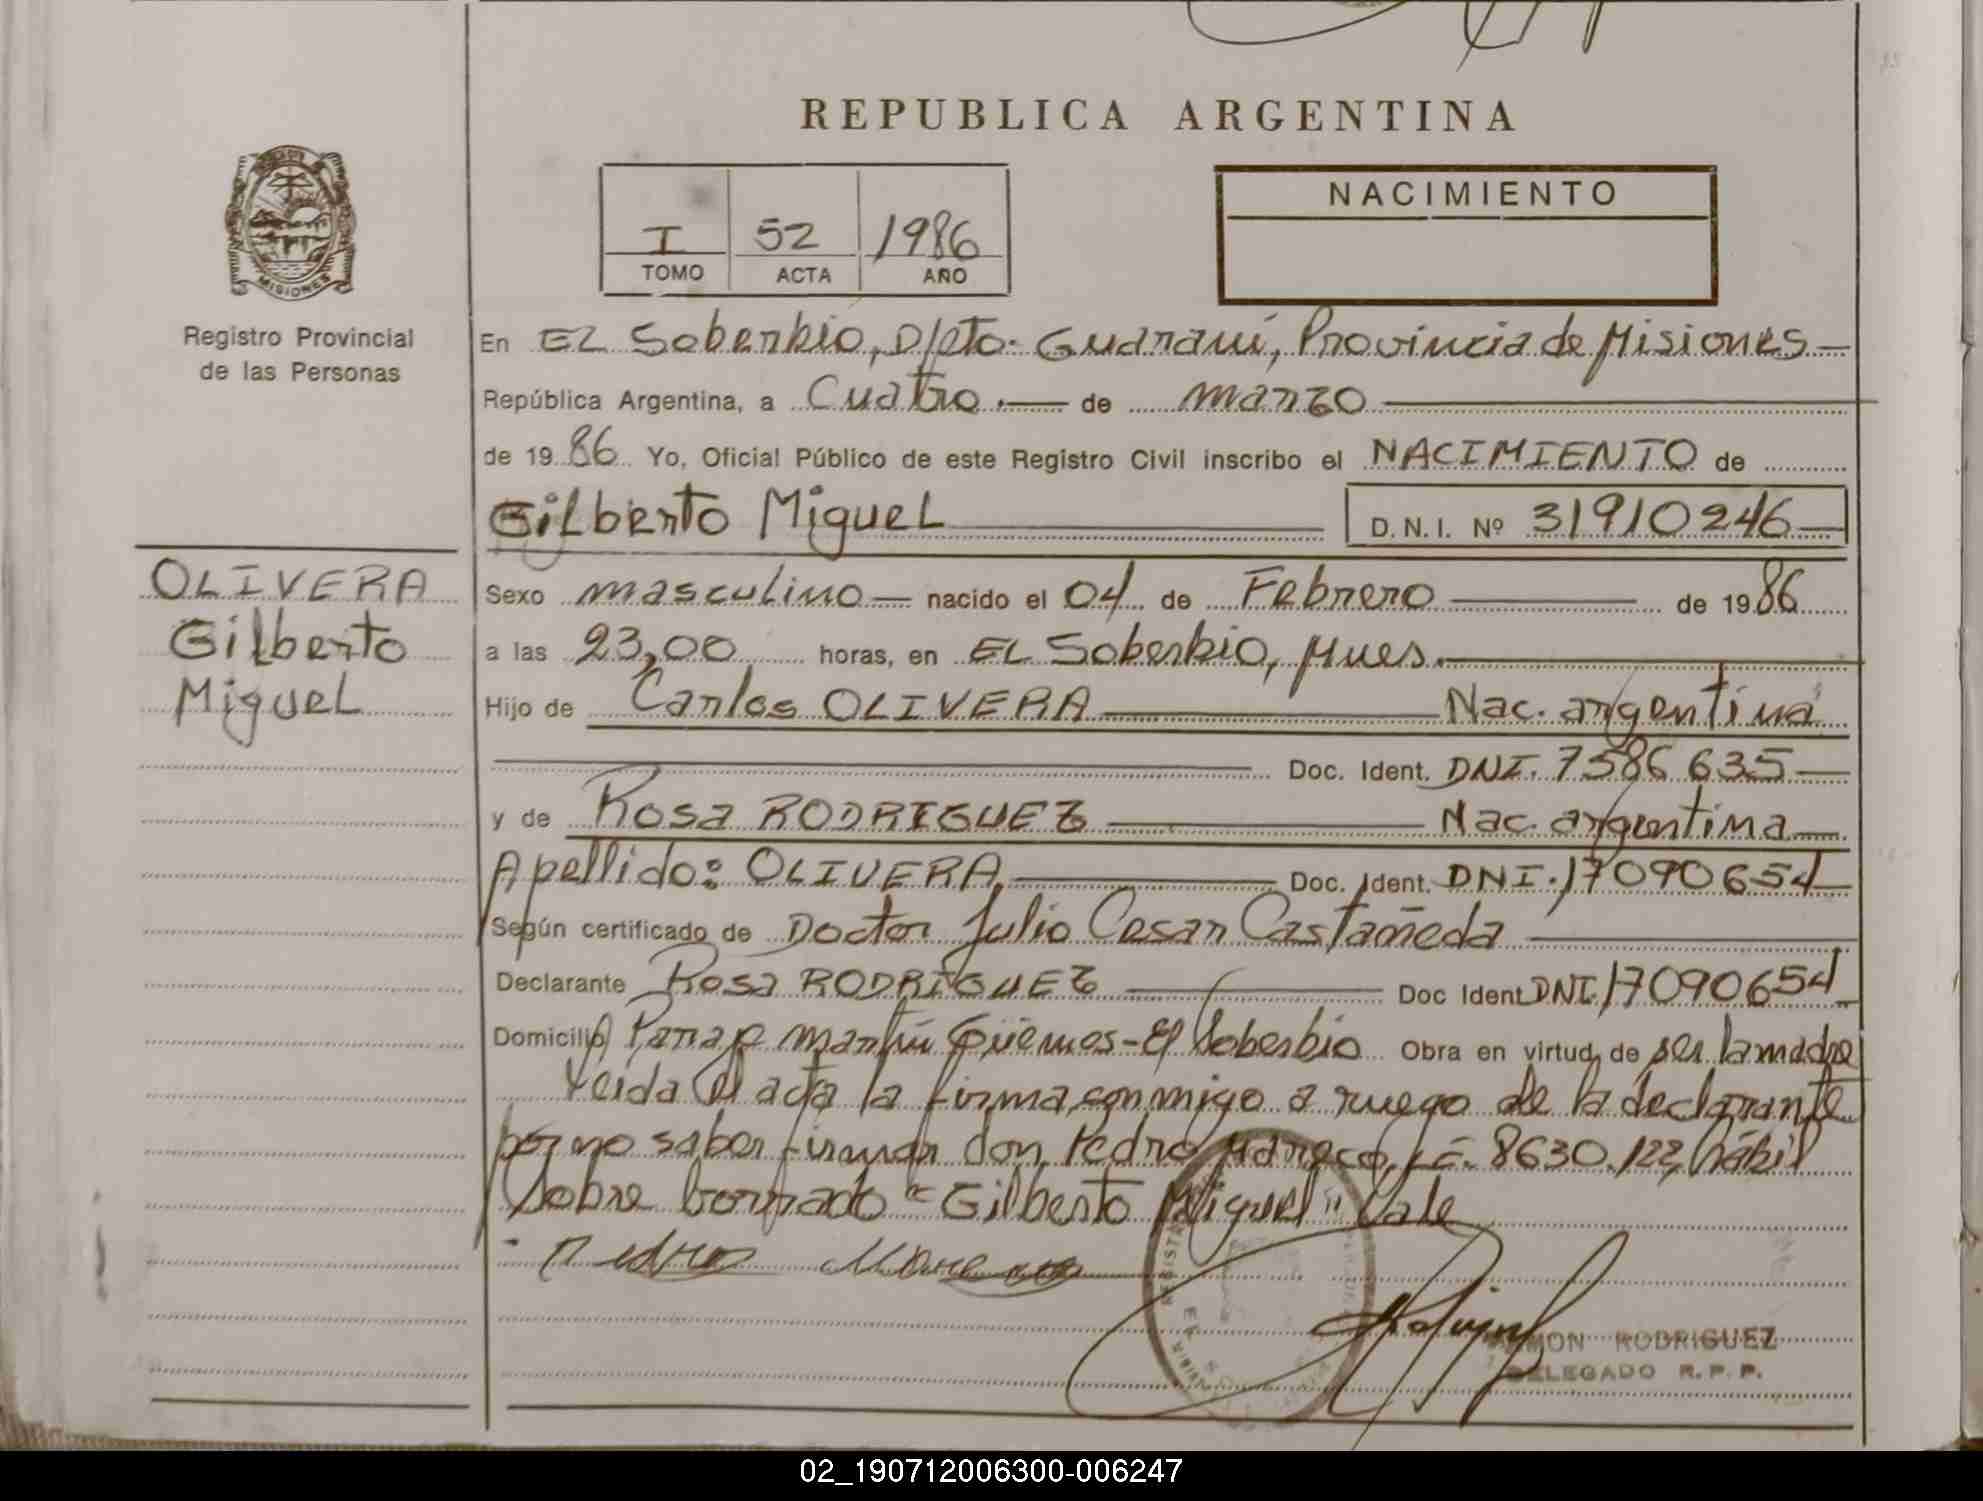 REPUBLICA ARGENTINA
MISIONES
Registro Provincial
de las Personas
I 52 1986
TOMO ACTA AÑO
NACIMIENTO
En EL Soberbio, Dpto. Guaraní, Provincia de Misiones
República Argentina, a Cuatro.— de marzo
de 1986 Yo, Oficial Público de este Registro Civil inscribo el NACIMIENTO de
Gilberto Miguel D.N.I. Nº 31910246
OLIVERA
Gilberto
Miguel
Sexo masculino nacido el 04 de Febrero de 1986
a las 23,00 horas, en EL Soberbio, Mnes.
Hijo de Carlos OLIVERA Nac. argentina
Doc. Ident. DNI. 7586635
y de Rosa RODRIGUEZ Nac. argentina
Apellido: OLIVERA Doc. Ident. DNI. 17090654
Según certificado de Doctor Julio Cesar Castañeda
Declarante Rosa RODRIGUEZ Doc Ident DNI. 17090654
Domicilio Martín Güemes - El Soberbio Obra en virtud de ser la madre
Leida el acta la firma conmigo a ruego de la declarante
por no saber firmar don Pedro L.E. 8630.122, hábil
Sobre borrado "Gilberto Miguel" Vale
Pedro
RAMON RODRIGUEZ
DELEGADO R.P.P.
02_190712006300-006247